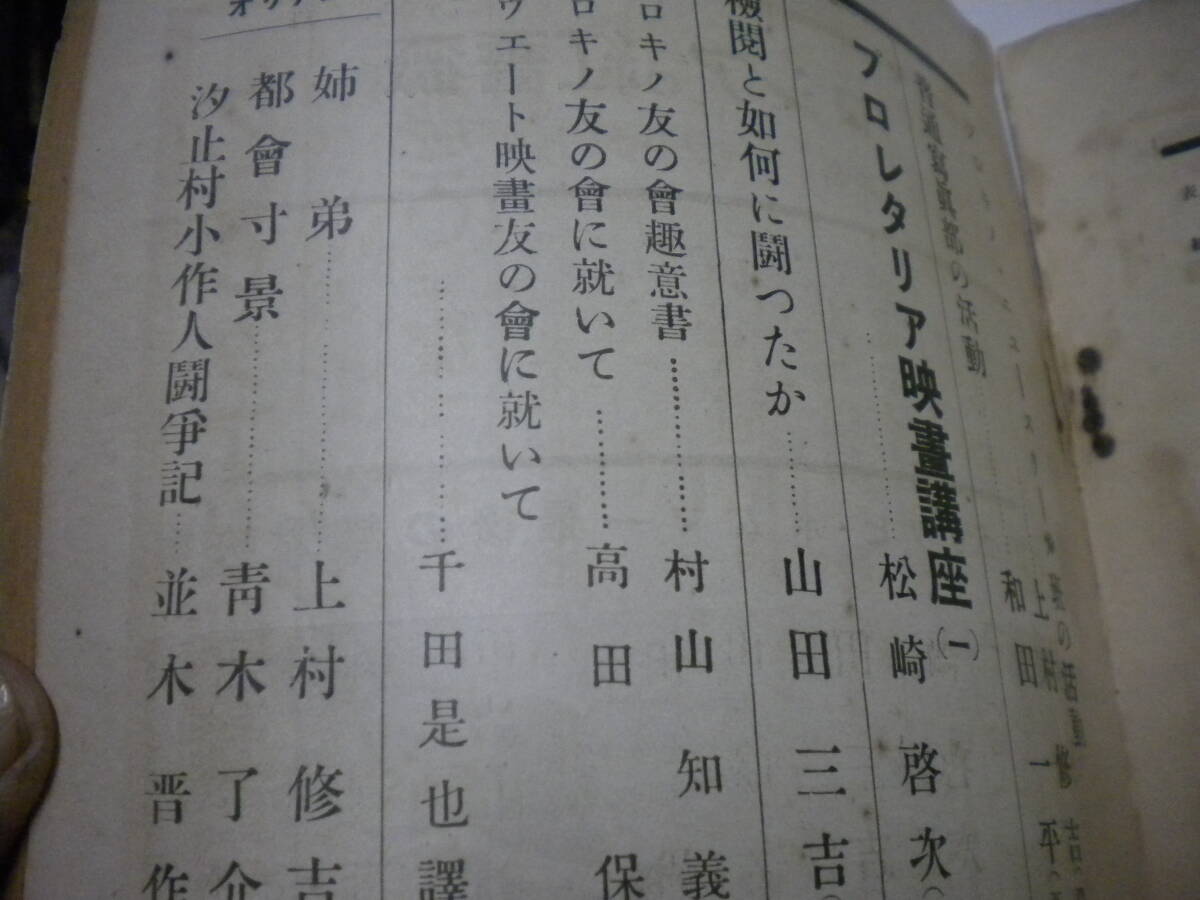 班の活動
上村修吉
普通寫眞部の活動
和田一平
プロレタリア映畫講座(一)
松崎啓次
檢閱と如何に鬪つたか…………山田三吉
ロキノ友の會趣意書…………村山知義
ロキノ友の會に就いて…………高田保
ウエート映畫友の會に就いて
…………千田是也譯
姉弟…………上村修吉
都會寸景…………靑木了介
汐止村小作人鬪爭記……並木晋作